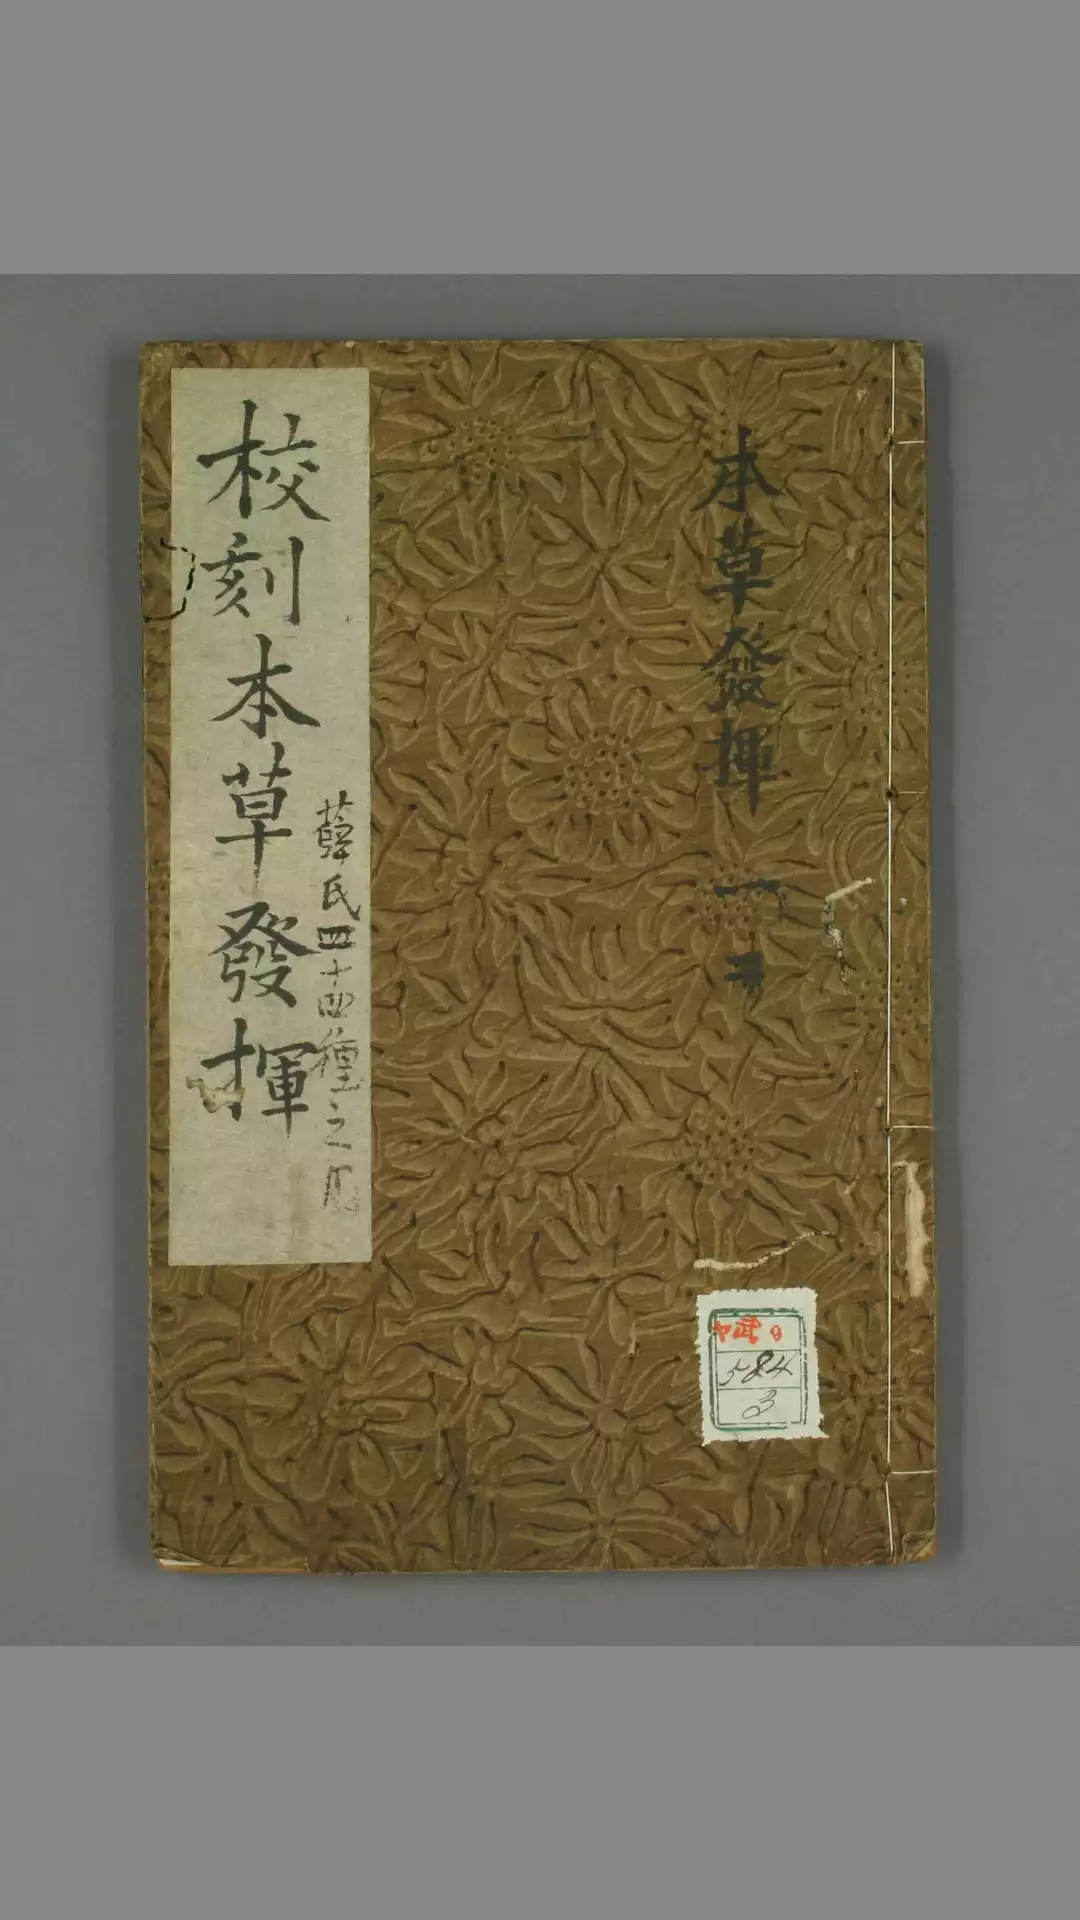 本草發揮 一之
校刻本草發揮
薛氏四十四種之內
ヤ武9
584
3